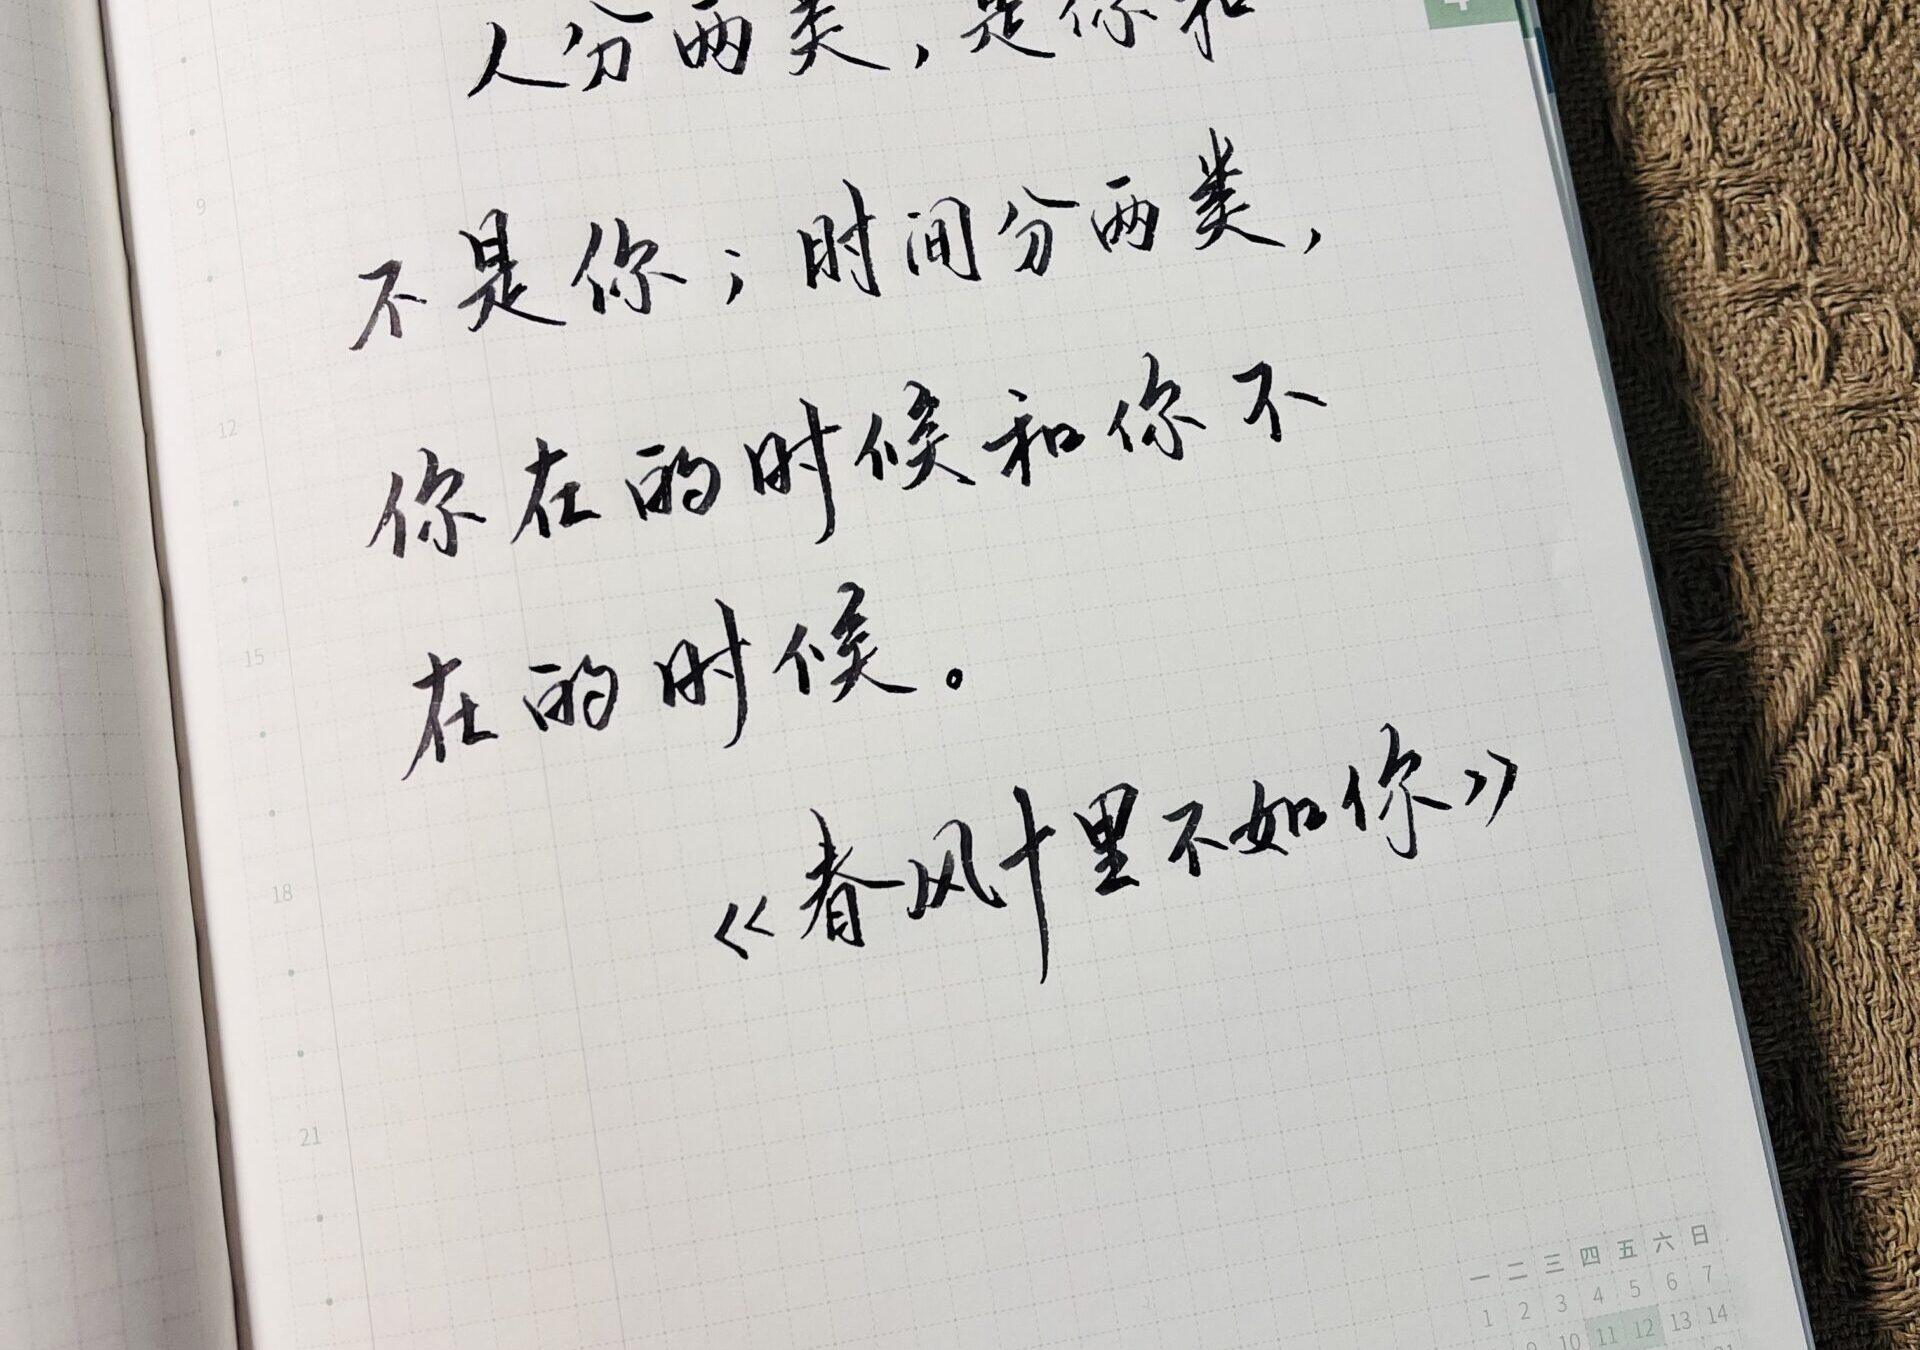 人分两类，是你和
不是你；时间分两类，
你在的时候和你不
在的时候。
《春风十里不如你》
9
12
15
18
21
一 二 三 四 五 六 日
1 2 3 4 5 6 7
9 10 11 12 13 14